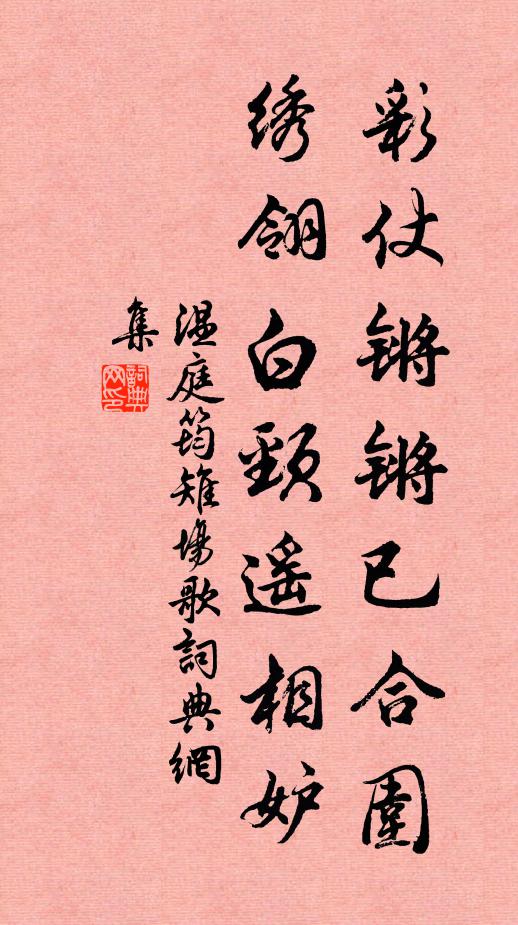 彩仗锵锵已合圍
绣翎白頸遥相妒
温庭筠雉場歌詞典網
集
詞典網印